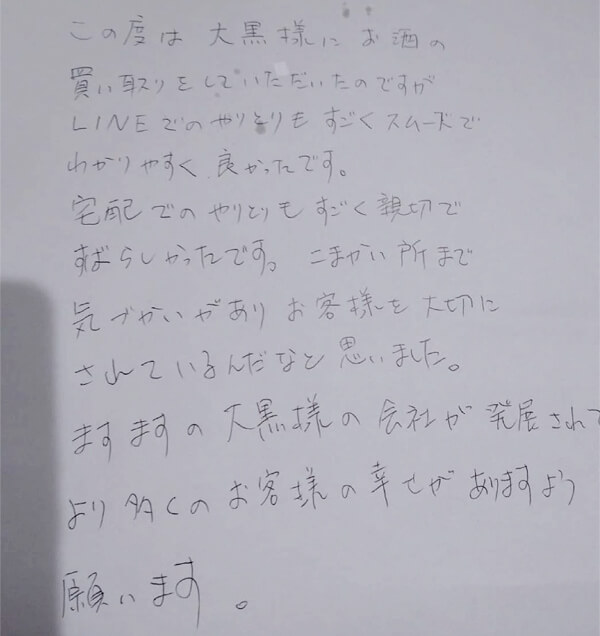 この度は 大黒様に お酒の
買い取りをしていただいたのですが
LINEでのやりとりも すごくスムーズで
わかりやすく 良かったです。
宅配でのやりとりも すごく親切で
すばらしかったです。こまかい所まで
気づかいがあり お客様を大切に
されているんだなと思いました。
ますますの大黒様の会社が発展されて
より多くのお客様の幸せがありますよう
願います。